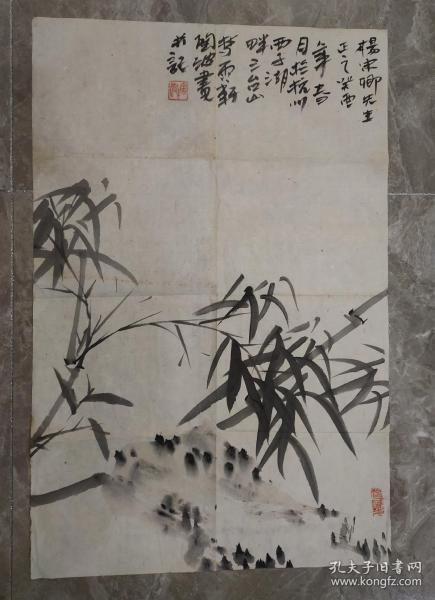 楊宋卿先生
正之癸酉
年春
月於杭州
西子湖
畔三台山
梦雨轩
陶波畫
并記
孔夫子旧书网
www.kongfz.com